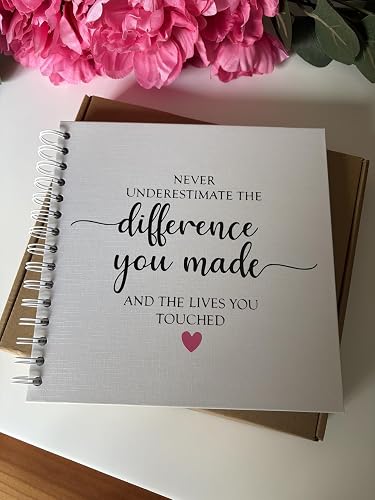 NEVER
UNDERESTIMATE THE
difference
you made
AND THE LIVES YOU
TOUCHED